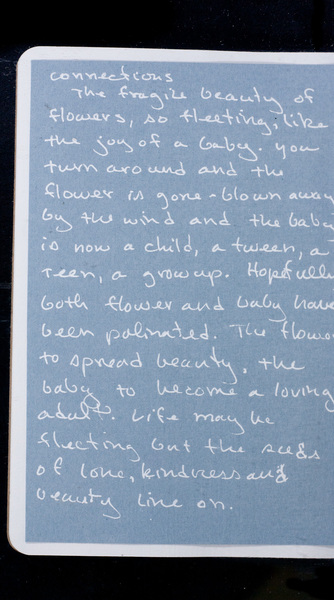 connections
The fragile beauty of
flowers, so fleeting, like
the joy of a baby. you
turn around and the
flower is gone - blown away
by the wind and the baby
is now a child, a tween, a
teen, a grow up. Hopefully
both flower and baby have
been polinated. The flower
to spread beauty, the
baby to become a loving
adult. Life may be
fleeting but the seeds
of love, kindness and
beauty live on.